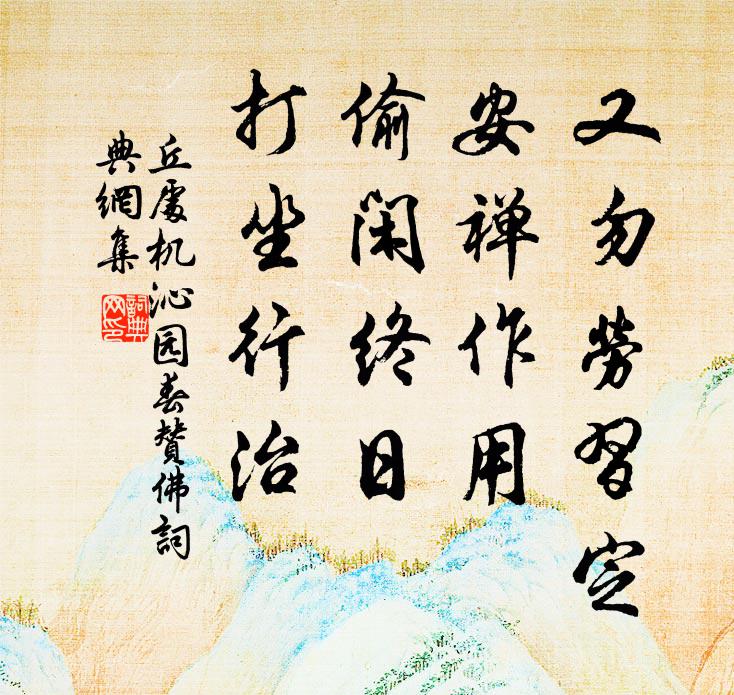 又勿劳习定
安禅作用
偷闲终日
打坐行治
丘处机沁园春赞佛词
典網集
詞典
网印